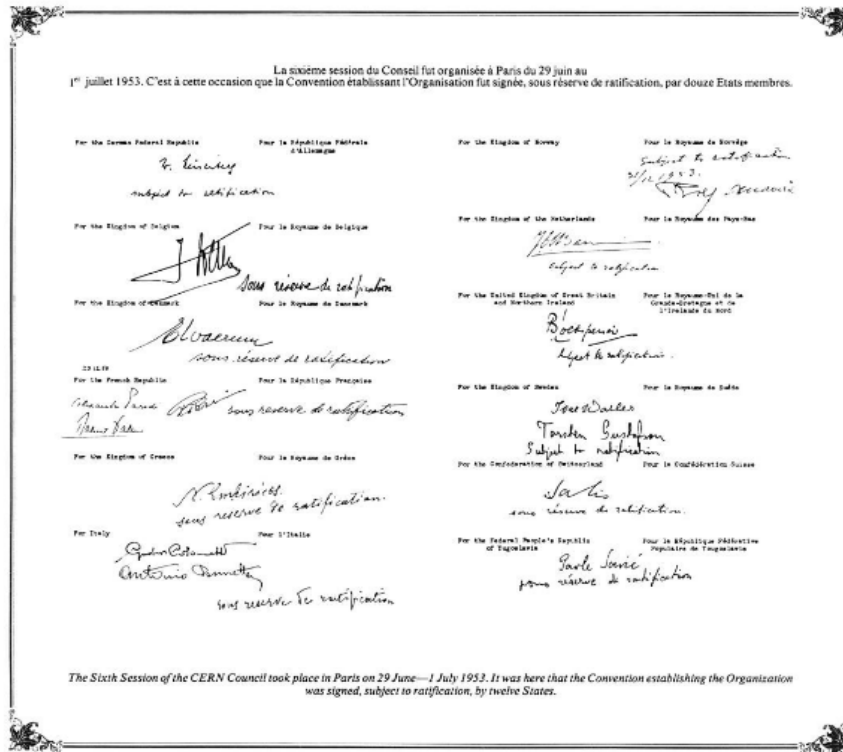 La sixième session du Conseil fut organisée à Paris du 29 juin au
1er juillet 1953. C'est à cette occasion que la Convention établissant l'Organisation fut signée, sous réserve de ratification, par douze Etats membres.
For the German Federal Republic
Pour la République Fédérale
d'Allemagne
subject to ratification
For the Kingdom of Belgium
Pour le Royaume de Belgique
sous réserve de ratification
For the Kingdom of Denmark
Pour le Royaume de Danemark
sous réserve de ratification
For the French Republic
Pour la République Française
sous reserve de ratification
For the Kingdom of Greece
Pour le Royaume de Grèce
sous reserve de ratification.
For Italy
Pour l'Italie
Antonio
sous reserve de ratification
For the Kingdom of Norway
Pour le Royaume de Norvège
Subject to ratification
1953.
For the Kingdom of the Netherlands
Pour le Royaume des Pays-Bas
subject to ratification
For the United Kingdom of Great Britain
and Northern Ireland
Pour le Royaume-Uni de la
Grande-Bretagne et de
l'Irelande du Nord
subject to ratification.
For the Kingdom of Sweden
Pour le Royaume de Suède
Waller
Torsten Gustafson
Subject to ratification
For the Confederation of Switzerland
Pour la Confédération Suisse
sous réserve de ratification.
For the Federal People's Republic
of Yugoslavia
Pour la République Fédérative
Populaire de Yougoslavie
Pavle Savić
sous réserve de ratification
The Sixth Session of the CERN Council took place in Paris on 29 June—1 July 1953. It was here that the Convention establishing the Organization
was signed, subject to ratification, by twelve States.